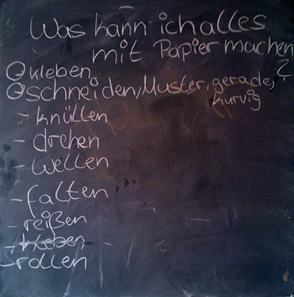 Was kann ich alles
mit Papier machen
?
kleben
schneiden, Muster, gerade,
kurvig
- knüllen
- drehen
- wellen
- falten
- reißen
- kleben
- rollen